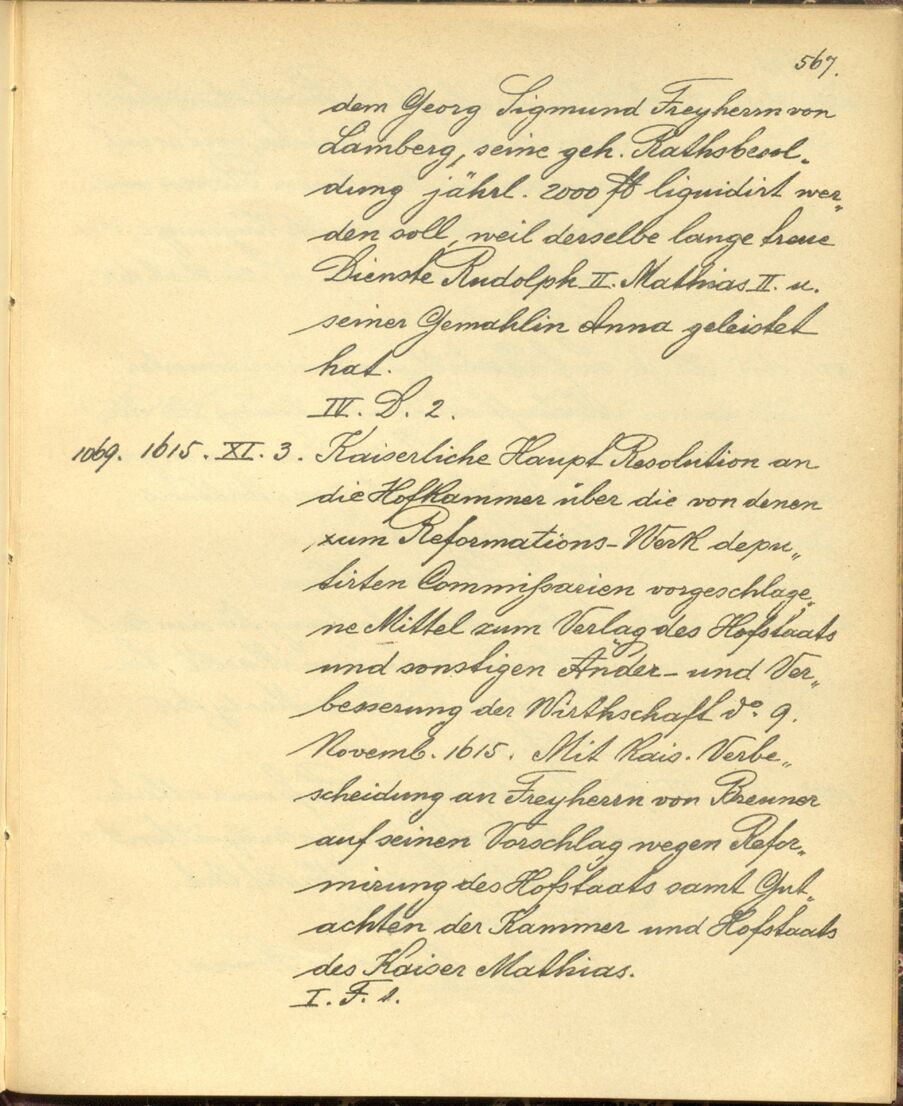 567.
dem Georg Sigmund Freyherrn von
Lamberg, seine geh. Rathsbesol„
dung jährl. 2000 fl liquidirt wer„
den soll, weil derselbe lange treue
Dienste Rudolph II. Mathias II. u.
seiner Gemahlin Anna geleistet
hat.
IV. D. 2.
1069. 1615. XI. 3. Kaiserliche Haupt Resolution an
die Hofkammer über die von denen
zum Reformations-Werk depu„
tirten Commißarien vorgeschlage„
ne Mittel zum Verlag des Hofstaats
und sonstigen Änder- und Ver„
besserung der Wirthschaft do. 9.
Novemb. 1615. Mit Kais. Verbe„
scheidung an Freyherrn von Breuner
auf seinen Vorschlag wegen Refor„
mirung des Hofstaats samt Gut„
achten der Kammer und Hofstaats
des Kaiser Mathias.
I. F. 1.